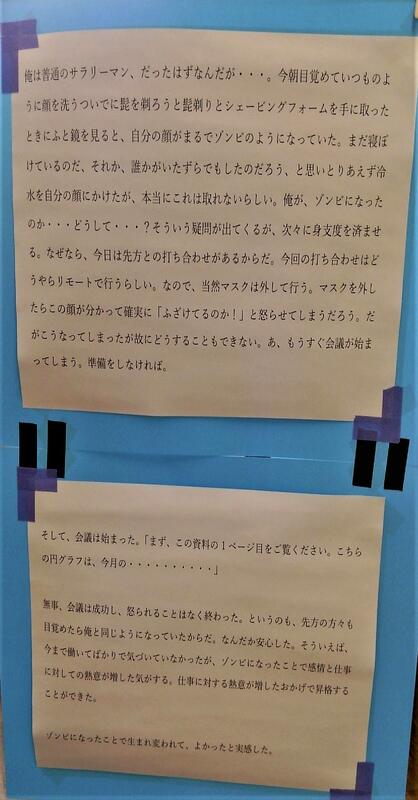 俺は普通のサラリーマン、だったはずなんだが・・・。今朝目覚めていつものよ
うに顔を洗うついでに髭を剃ろうと髭剃りとシェービングフォームを手に取った
ときにふと鏡を見ると、自分の顔がまるでゾンビのようになっていた。まだ寝ぼ
けているのだ、それか、誰かがいたずらでもしたのだろう、と思いとりあえず冷
水を自分の顔にかけたが、本当にこれは取れないらしい。俺が、ゾンビになった
のか・・・どうして・・・？そういう疑問が出てくるが、次々に身支度を済ませ
る。なぜなら、今日は先方との打ち合わせがあるからだ。今回の打ち合わせはど
うやらリモートで行うらしい。なので、当然マスクは外して行う。マスクを外し
たらこの顔が分かって確実に「ふざけてるのか！」と怒らせてしまうだろう。だ
がこうなってしまったが故にどうすることもできない。あ、もうすぐ会議が始ま
ってしまう。準備をしなければ。
そして、会議は始まった。「まず、この資料の１ページ目をご覧ください。こちら
の円グラフは、今月の・・・・・・・・・・」
無事、会議は成功し、怒られることはなく終わった。というのも、先方の方々も
目覚めたら俺と同じようになっていたからだ。なんだか安心した。そういえば、
今まで働いてばかりで気づいていなかったが、ゾンビになったことで感情と仕事
に対しての熱意が増した気がする。仕事に対する熱意が増したおかげで昇格する
ことができた。
ゾンビになったことで生まれ変われて、よかったと実感した。